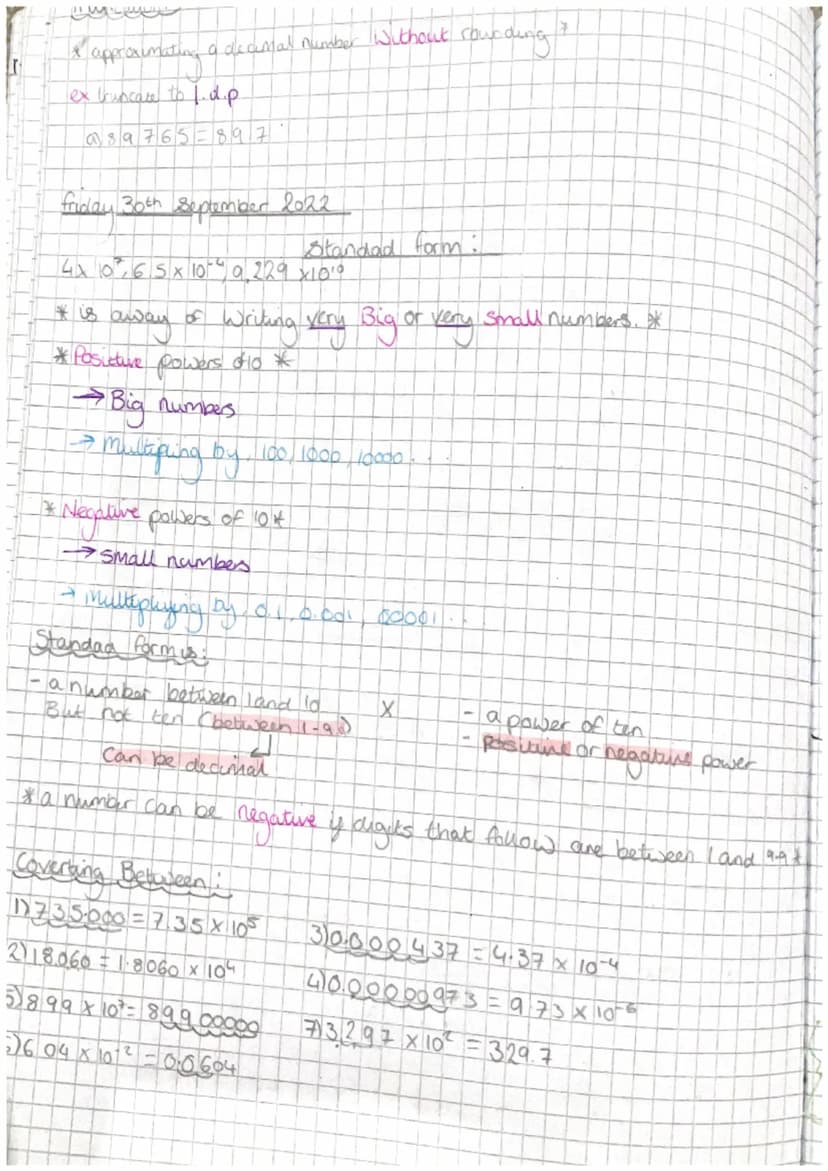 * approximating a decimal number without rounding *
ex truncate to 1.d.p
a) 89 765 = 89 7
friday 30th September 2022
Standad form:
4 x 10⁷, 6.5 x 10⁻⁴, 9.229 x10¹⁰
* is away of writing very Big or very small numbers. *
* Positive powers of 10 *
→ Big numbers
→ Multiplying by, 100, 1000, 10000...
* Negative powers of 10 *
→ small numbers
→ Multiplying by, 0.1, 0.001, 00001...
Standad form is:
- a number between 1 and 10 x - a power of ten
But not ten (between 1-9.9) - positive or negative power
Can be decimal
* a number can be negative if digits that follow are between 1 and 9.9 *
Coverting Between:
1) 735000 = 7.35 x 10⁵
2) 18060 = 1.8060 x 10⁴
3) 0.000437 = 4.37 x 10⁻⁴
4) 0.00000973 = 9.73 x 10⁻⁶
5) 8 99 x 10⁷ = 89900000
6 04 x 10⁻² = 0.0604
7) 3.297 x 10² = 329.7